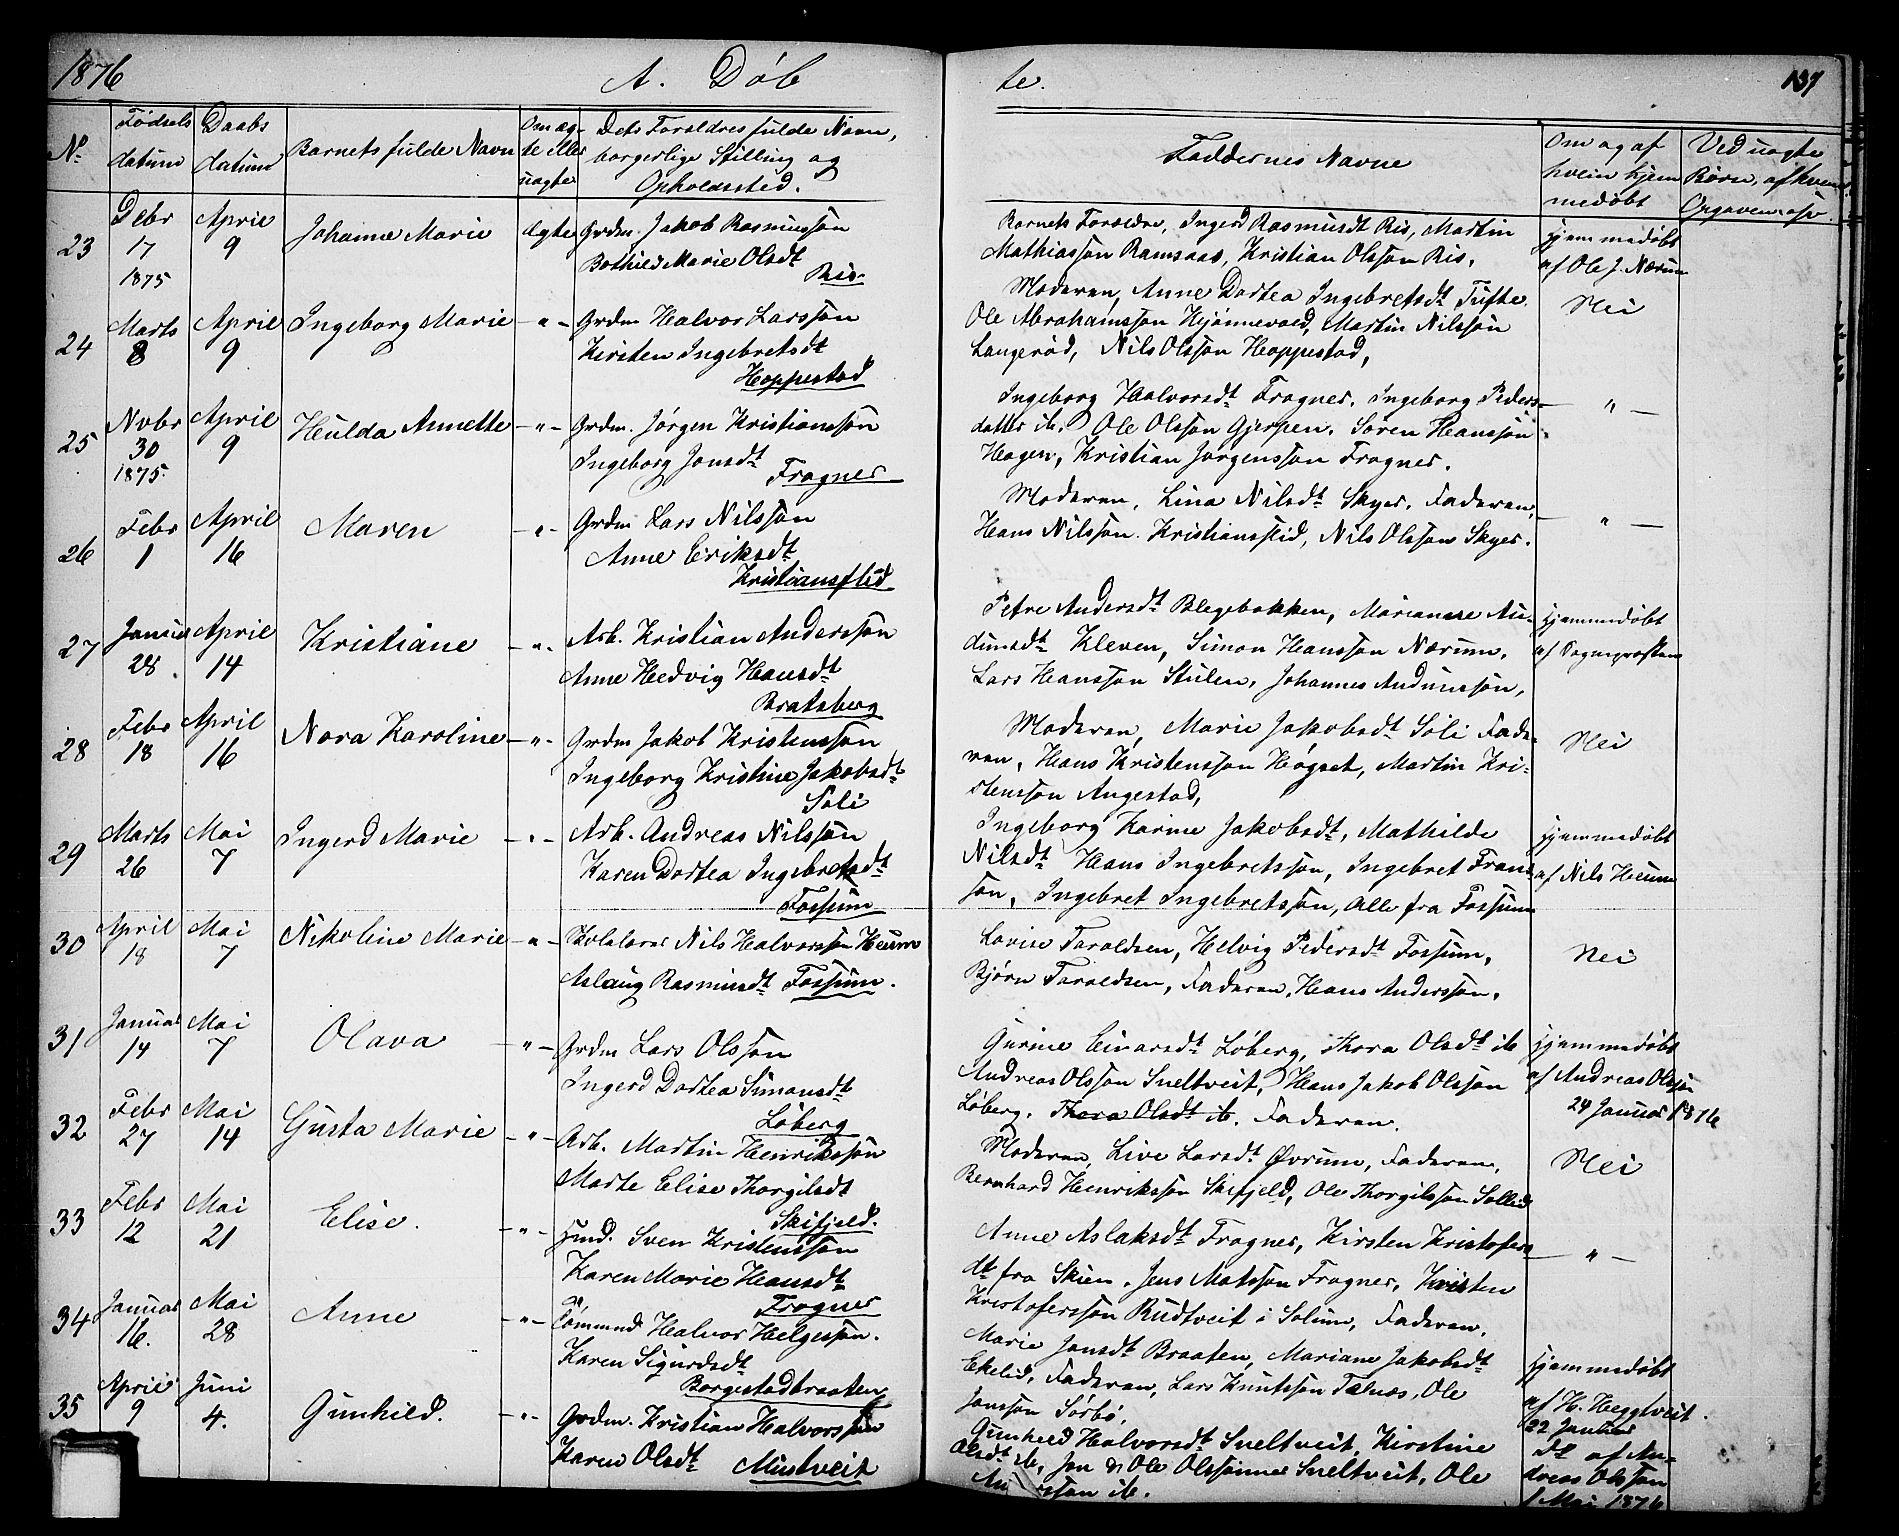 1876 A. Døb te. 137
No. Fødsels datum Daabs datum Barnets fulde Navn Om æg- te eller uægte Dets Forældres fulde Navn, borgerlige Stilling og Opholdssted. Faddernes Navne Om og af hvem hjem medøbt Ved uægte Børn, af hvem Opgaven
23 Debr 17 1875 April 9 Johanne Marie ægte Grdm. Jakob Rasmussøn
Bothild Marie Olsdt
Ris
Barnets Forældre, Ingerd Rasmusdt Ris, Martin
Mathiassøn Ramsaas, Kristian Olssøn Ris.
hjemmedøbt
af Ole J. Nærum
24 Marts 8 April 9 Ingeborg Marie - " - Grdm Halvor Larssøn
Kirsten Ingebretsdt
Hoppestad
Moderen, Anne Dortea Ingebretsdt Tufte
Ole Abrahamssøn Hjønnevald, Martin Nilssøn
Langerød, Nils Olssøn Hoppestad,
Nei
25 Nvbr 30 1875. April 9 Hulda Annette - " - Grdm. Jørgen Kristianssøn
Ingeborg Jonsdt
Frogner
Ingeborg Halvorsdt Frogner. Ingeborg Peders-
datter ib. Ole Olssøn Gjerpen. Søren Hanssøn
Hagen, Kristian Jørgenssøn Frogner.
- " -
26 Febr 1 April 16 Maren - " - Grdm Lars Nilssøn
Anne Eriksdt
Kristianslid
Moderen, Lina Nilsdt Skyer. Faderen,
Hans Nilssøn Kristianslid, Nils Olssøn Skyer.
- " -
27 Januar 28. April 14 Kristiane - " - Arb. Kristian Anderssøn
Anne Hedvig Hansdt
Bratsberg
Petre Andersdt Blegebakken, Marianne Au-
dunsdt Kleven, Simon Hanssøn Nærum.
Lars Hanssøn Stulen, Johannes Audunssøn,
hjemmedøbt
af Sognepræsten
28 Febr 18 April 16 Nora Karoline - " - Grdm Jakob Kristenssøn
Ingeborg Kristine Jakobsdt
Søli
Moderen, Marie Jakobsdt Søli Fade-
ren, Hans Kristenssøn Høgset, Martin Kri-
stenssøn Augestad,
Nei
29 Marts 26 Mai 7 Ingerd Marie - " - Arb. Andreas Nilssøn
Karen Dortea Ingebretsdt
Fossum
Ingeborg Karine Jakobsdt, Mathilde
Nilsdt Hans Ingebretssøn, Ingebret Frans-
søn, Ingebret Ingebretssøn, Alle fra Fossum
hjemmedøbt
af Nils Heum
30 April 18 Mai 7 Nikoline Marie - " - Skolelærer Nils Halvorssøn Heum
Aslaug Rasmusdt Fossum.
Lovise Taraldsen, Helvig Pedersdt Fossum,
Bjørn Taraldsen, Faderen, Hans Anderssøn,
Nei
31 Januar 14 Mai 7 Olava - " - Grdm Lars Olssøn
Ingerd Dortea Simonsdt
Løberg
Gurine Einarsdt Løberg, Thora Olsdt ib
Andreas Olssøn Sneltveit, Hans Jakob Olssøn
Løberg. Thora Olsdt ib. Faderen.
hjemmedøbt
af Andreas Olssøn
24 Januar 1876
32 Febr 27 Mai 14 Gusta Marie - " - Arb. Martin Henrikssøn
Marte Elise Thorgilsdt
Skifjeld.
Moderen, Live Larsdt Øvrum, Faderen,
Bernhard Henrikssøn Skifjeld, Ole Thorgilssøn Sollid
Nei
33 Febr 12 Mai 21 Elise. - " - Hmd. Sven Kristenssøn
Karen Marie Hansdt
Frogner
Anne Aslaksdt Frogner, Kirsten Kristofers-
dt fra Skien. Jens Matssøn Frogner, Kristen
Kristoferssøn Rudtveit i Solum, Faderen.
- " -
34 Januar 16. Mai 28 Anne - " - Tømmerm Halvor Helgessøn.
Karen Sigurdsdt
Borgestadbraaten
Marie Jonsdt Braaten, Mariane Jakobsdt
Ekelid, Faderen, Lars Knutssøn Falnæs, Ole
Janssøn Sørbø.
hjemmedøbt
af H. Heggtveit.
22 Januar
35 April 9 Juni 4. Gunhild. - " - Grdm. Kristian Halvorssøn
Karen Olsdt Mustveit
Gunhild Halvorsdt Sneltveit, Kirstine
Olsdt ib, Jon & Ole Olssønner Sneltveit, Ole
ssøn ib.
Do af An-
dreas Olssøn
1 Mai 1876